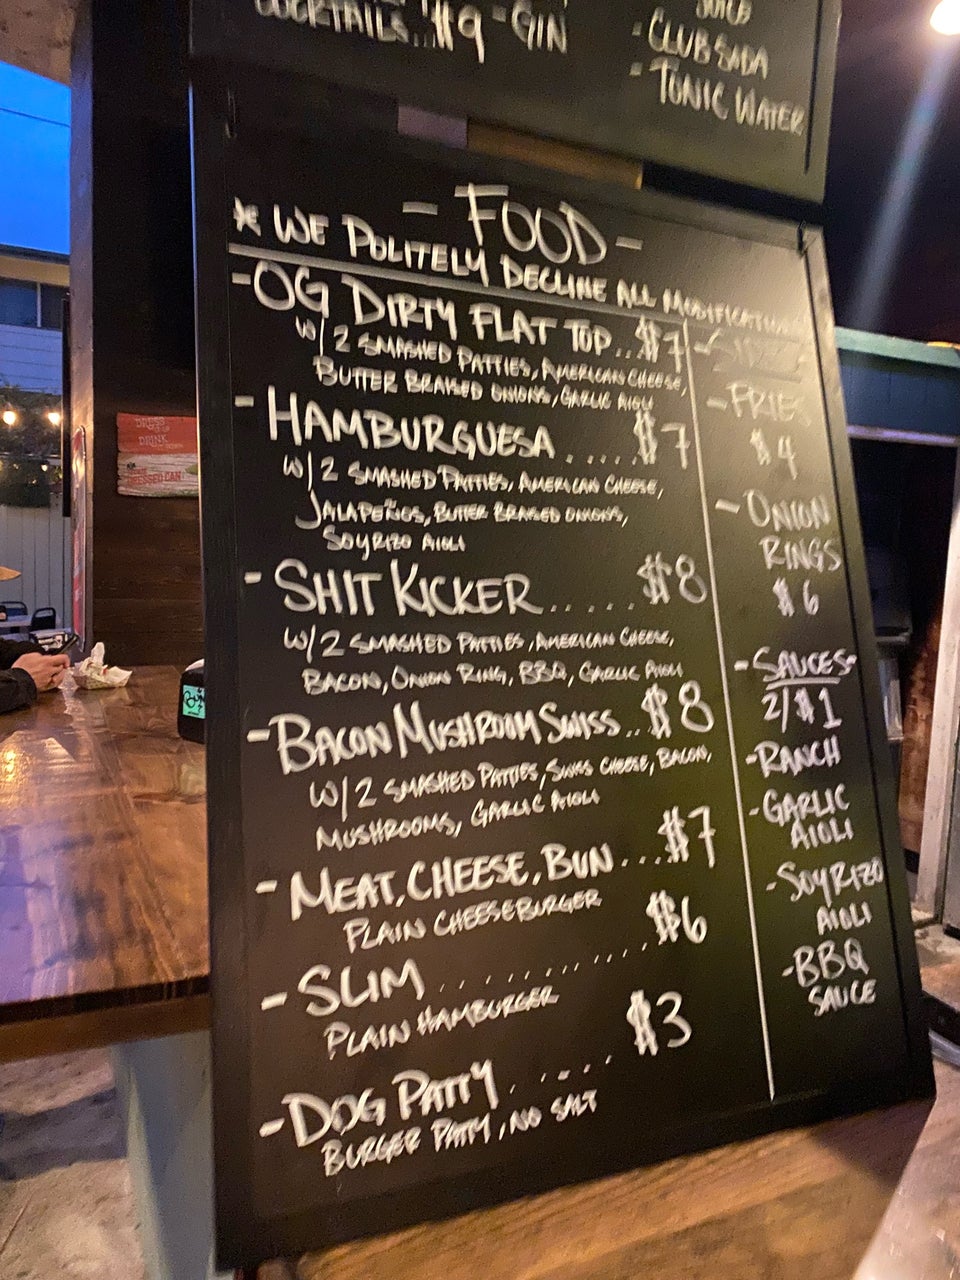 COCKTAILS...$9 - GIN
JUICE
- CLUB SODA
- TONIC WATER
- FOOD -
* WE POLITELY DECLINE ALL MODIFICATIONS
- OG DIRTY FLAT TOP...$7
W/ 2 SMASHED PATTIES, AMERICAN CHEESE,
BUTTER BRAISED ONIONS, GARLIC AIOLI
- HAMBURGUESA.....$7
W/ 2 SMASHED PATTIES, AMERICAN CHEESE,
JALAPEÑOS, BUTTER BRAISED ONIONS,
SOYRIZO AIOLI
- SHIT KICKER.....$8
W/ 2 SMASHED PATTIES, AMERICAN CHEESE,
BACON, ONION RING, BBQ, GARLIC AIOLI
- BACON MUSHROOM SWISS..$8
W/ 2 SMASHED PATTIES, SWISS CHEESE, BACON,
MUSHROOMS, GARLIC AIOLI
- MEAT, CHEESE, BUN....$7
PLAIN CHEESEBURGER
- SLIM..........$6
PLAIN HAMBURGER
- DOG PATTY.....$3
BURGER PATTY, NO SALT
- SIDES
- FRIES
$4
- ONION
RINGS
$6
- SAUCES-
2/$1
- RANCH
- GARLIC
AIOLI
- SOYRIZO
AIOLI
- BBQ
SAUCE
DRINK